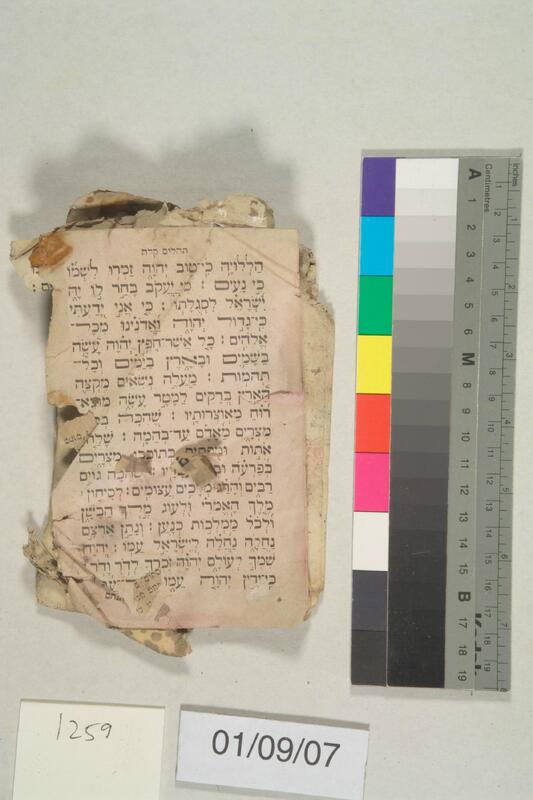 תהלים קלה
הַלְלוּיָהּ כִּי־טוֹב יְהוָה זַמְּרוּ לִשְׁמוֹ
כִּי נָעִים : כִּי יַעֲקֹב בָּחַר לוֹ יָהּ
יִשְׂרָאֵל לִסְגֻלָּתוֹ : כִּי אֲנִי יָדַעְתִּי
כִּי־גָדוֹל יְהוָה וַאֲדֹנֵינוּ מִכָּל־
אֱלֹהִים : כֹּל אֲשֶׁר־חָפֵץ יְהוָה עָשָׂה
בַּשָּׁמַיִם וּבָאָרֶץ בַּיַּמִּים וְכָל־
תְּהֹמוֹת : מַעֲלֶה נְשִׂאִים מִקְצֵה
הָאָרֶץ בְּרָקִים לַמָּטָר עָשָׂה מוֹצֵא־
רוּחַ מֵאוֹצְרוֹתָיו : שֶׁהִכָּה
מִצְרָיִם מֵאָדָם עַד־בְּהֵמָה : שָׁלַח
אֹתוֹת בְּתוֹכֵכִי מִצְרָיִם
בְּפַרְעֹה גּוֹיִם
רַבִּים וְהָרַג מְלָכִים עֲצוּמִים : לְסִיחוֹן
מֶלֶךְ הָאֱמֹרִי וּלְעוֹג מֶלֶךְ הַבָּשָׁן
וּלְכֹל מַמְלְכוֹת כְּנָעַן : וְנָתַן אַרְצָם
נַחֲלָה נַחֲלָה לְיִשְׂרָאֵל עַמּוֹ : יְהוָה
שִׁמְךָ לְעוֹלָם יְהוָה זִכְרְךָ לְדֹר וָדֹר :
כִּי־יָדִין יְהוָה עַמּוֹ
inches
Centimetres
1 2 3 4 5 6 7
1 2 3 4 5 6 7 8 9 10 11 12 13 14 15 16 17 18 19
A 1 2 3 4 5 6 M 8 9 10 11 12 13 14 15 B 17 18 19
1259
01/09/07